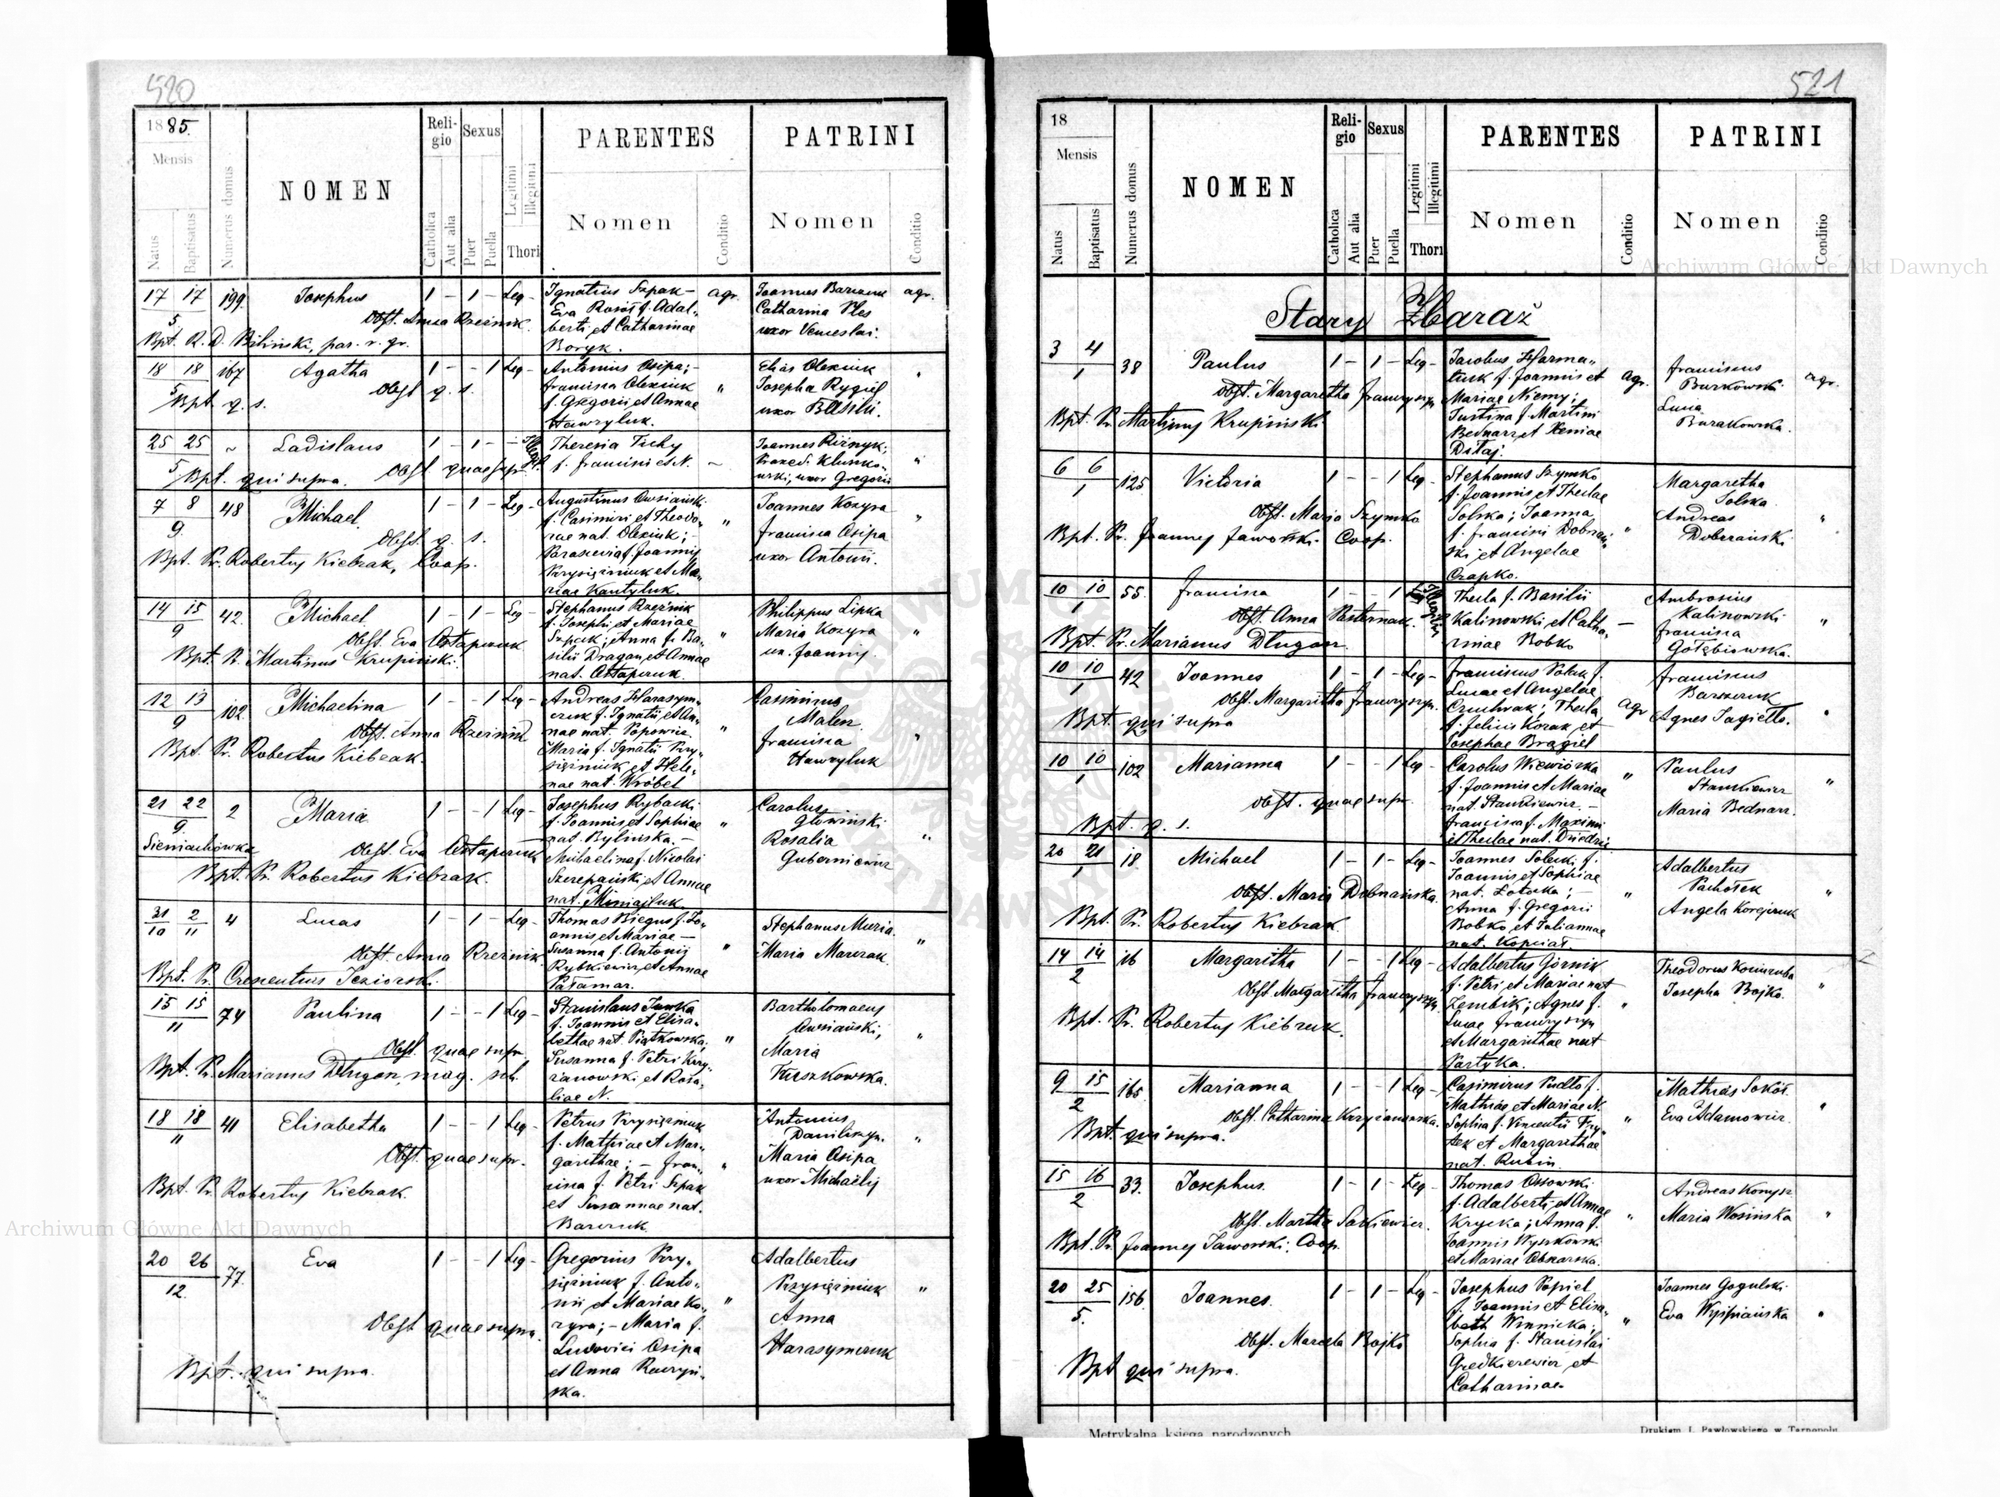 520
1885.
Mensis
Natus
Baptisatus
Numerus domus
NOMEN
Religio
Catholica
Aut alia
Sexus
Puer
Puella
Legitimi
Illegitimi
Thori
PARENTES
Nomen
Conditio
PATRINI
Nomen
Conditio
17 17 199. Josephus 1 – 1 – Leg – Ignatius Szpak – agr. Joannes Barczuk agr.
5 Obst. Anna Rzeźnik. Catharina Ples
Bpt. R. D. Biliński, par. r. gr. uxor Venceslai.
berti, et Catharinae
Boryk.
18 18 167 Agatha 1 – – 1 Leg – Antonius Osipa; – Elias Olexiuk
5 Obst q. s. Francisca Olexiuk " Josepha Rygiel
Bpt. q. s. f. Gregorii et Annae uxor Basilii.
Hawryluk.
25 25 Ladislaus 1 – 1 – Theresia Tichy
5 Bpt. qui supra. Obst quae supr. f. Francisci et N.
uxor Gregorii
7 8 48 Michael 1 – 1 – Leg – Augustinus Owsiański Joannes Kozyra
9. Obst q. s. f. Casimiri et Theodo- " Francisca Osipa
Bpt. Pr. Robertus Kiebzak, Coop. rae nat. Olexiuk; – uxor Antonii.
Parascevia f. Joannis
Przysiężniuk et Ma-
riae Kantyluk.
14 15 42. Michael 1 – 1 – Leg – Stephanus Rzeźnik Philippus Lipka
9 Obst. Eva Ostapczuk f. Josephi et Mariae Maria Kozyra
Bpt. Pr. Martinus Krupiński. Szpak; Anna f. Ba- ux. Joannis.
silii Dragan, et Annae
nat. Ostapczuk.
12 13 102. Michaelina 1 – – 1 Leg – Andreas Harasym- Casimirus
9 Obst. Anna Rzeźnik czuk f. Ignatii et An- Malen
Bpt. Pr. Robertus Kiebzak. nae nat. Popowicz. Francisca
Maria f. Ignatii Przy- Hawryluk
siężniuk et Hele-
nae nat. Wróbel
21 22 2 Maria 1 – – 1 Leg – Josephus Rybacki Carolus
9. f. Joannis et Sophiae Głowiński
Sieniachówka Obst. Eva Ostapczuk nat. Bylińska. – Rosalia
Bpt. Pr. Robertus Kiebzak. Michaelina f. Nicolai Guberniewicz
Szczepański et Annae
nat. Miniajluk.
31 2 4 Lucas 1 – 1 – Leg – Thomas Biegus f. Jo-
10 11 annis et Mariae – Stephanus Muzia.
Obst. Anna Rzeźnik Susanna f. Antonii Maria Marczak
Bpt. Pr. Crescentius Jeziorski. Rybkiewicz, et Annae
Pałamar.
15 15 74 Paulina 1 – – 1 Leg – Stanislaus Jurka Bartholomaeus
11 f. Joannis et Elisa- Owsiański;
Obst. quae supr. bethae nat Piątkowska; Maria
Bpt. Pr. Marianus Długon, mag. sch. Susanna f. Petri Krzy- Kuszkowska.
żanowski, et Rosa-
liae N.
18 18 41 Elisabetha 1 – – 1 Leg – Petrus Przysiężniuk Antonius
11 f. Mathiae et Mar-
Obst. quae supr. garethae; – Fran- Maria Osipa
Bpt. Pr. Robertus Kiebzak. cisca f. Petri Szpak uxor Michaelis
et Susannae nat.
Barczuk
20 26 77. Eva 1 – – 1 Leg – Gregorius Przy- Adalbertus
12. siężniuk f. Anto- Przysiężniuk "
nii et Mariae Ko- " Anna
Obst quae supra. zyra; – Maria f. Harasymczuk
Bpt. qui supra. Ludovici Osipa
et Anna Raczyń-
ska.
521
18
Mensis
Natus
Baptisatus
Numerus domus
NOMEN
Religio
Catholica
Aut alia
Sexus
Puer
Puella
Legitimi
Illegitimi
Thori
PARENTES
Nomen
Conditio
PATRINI
Nomen
Conditio
Stary Zbaraż
3 4 38 Paulus 1 – 1 – Leg – Jacobus Harma-
1 Obst. Margaretha Franczyszyn tiuk f. Joannis et agr. Franciscus Burkowski agr.
Bpt. Pr. Martinus Krupiński Mariae Niemy; Lucia
Justina f. Martini Burakowska.
Bednarz et Xeniae
Ditaj.
6 6 125 Victoria 1 – – 1 Leg – Stephanus Szymko Margaretha
1 f. Joannis et Theclae Solska
Obst. Maria Szymko Solska; Joanna Andreas
Bpt. Pr. Joannes Jaworski Coop. f. Francisci Dobrzań- " Dobrzański.
ski et Angelae
Czapko.
10 10 55. Francisca 1 – – 1 Thecla f. Basilii Ambrosius
1 Obst. Anna Pasternak. Kalinowski, et Catha- – Kalinowski
Bpt. Pr. Marianus Długon. rinae Bobko Francisca
Gołębiowska.
10 10 42 Joannes 1 – – 1 Leg – Franciscus Polek f. Franciscus
1 Obst. Margaretha Franczyszyn. Lucae et Angelae Barszczuk
Bpt. qui supra Thecla agr Agnes Jagiełło.
f. Felicis Kozak et
Josephae Brągiel
10 10 102 Marianna 1 – – 1 Leg – Carolus Wiewiórka Paulus
1 f. Joannis et Mariae Stankiewicz
Obst. quae supr. nat. Stankiewicz. – Maria Bednarz.
Bpt. q. s. Francisca f. Maximi
et Theclae nat. Dziedzic
20 21 18 Michael 1 – 1 – Leg – Joannes Solecki f. Adalbertus
1 Joannis et Sophiae Pachołek
Obst. Maria Dobrzańska. nat. Łotocka; – Angela Korejczuk
Bpt. Pr. Robertus Kiebzak. Anna f. Gregorii
Bobko et Julianae
nat. Kopciał.
14 14 16 Margaritha 1 – – 1 Leg – Adalbertus Górnik
2 Obst. Margaritha Franczyszyn f. Petri, et Mariae nat Josepha Bojko.
Bpt. Pr. Robertus Kiebzak. Zembik; Agnes f.
Lucae Franczyszyn
et Margarithae nat
Partyka.
9 15 165 Marianna 1 – – 1 Leg – Casimirus Pudło f. Mathias Sokół.
2 Obst. Catharina Krzyżanowska. Mathiae, et Mariae N. Eva Adamowicz.
Bpt. qui supra. Sophia f. Vincentii Fry-
dek et Margarithae
nat. Rubin.
15 16 33. Josephus. 1 – 1 – Leg – Thomas Ossowski Andreas Konysz
2 Obst. Martha Sackiewicz. f. Adalberti, et Annae Maria Wosińska
Bpt. Pr. Joannes Jaworski; Coop. Krycka; Anna f.
Joannis Wyszkowski
et Mariae Obzarska.
20 25 156. Joannes. 1 – 1 – Leg – Josephus Popiel Joannes Gogulski
5. f. Joannis et Elisa- Eva Wyspiańska
Obst. Marcela Bojko beth Winnicka;
Bpt qui supra. Sophia f. Stanislai
Gredkierewicz, et
Catharinae.
Metrykalna księga narodzonych
Drukiem J. Pawłowskiego w Tarnopolu
Archiwum Główne Akt Dawnych
Archiwum Główne Akt Dawnych
ARCHIWUM GŁÓWNE AKT DAWNYCH